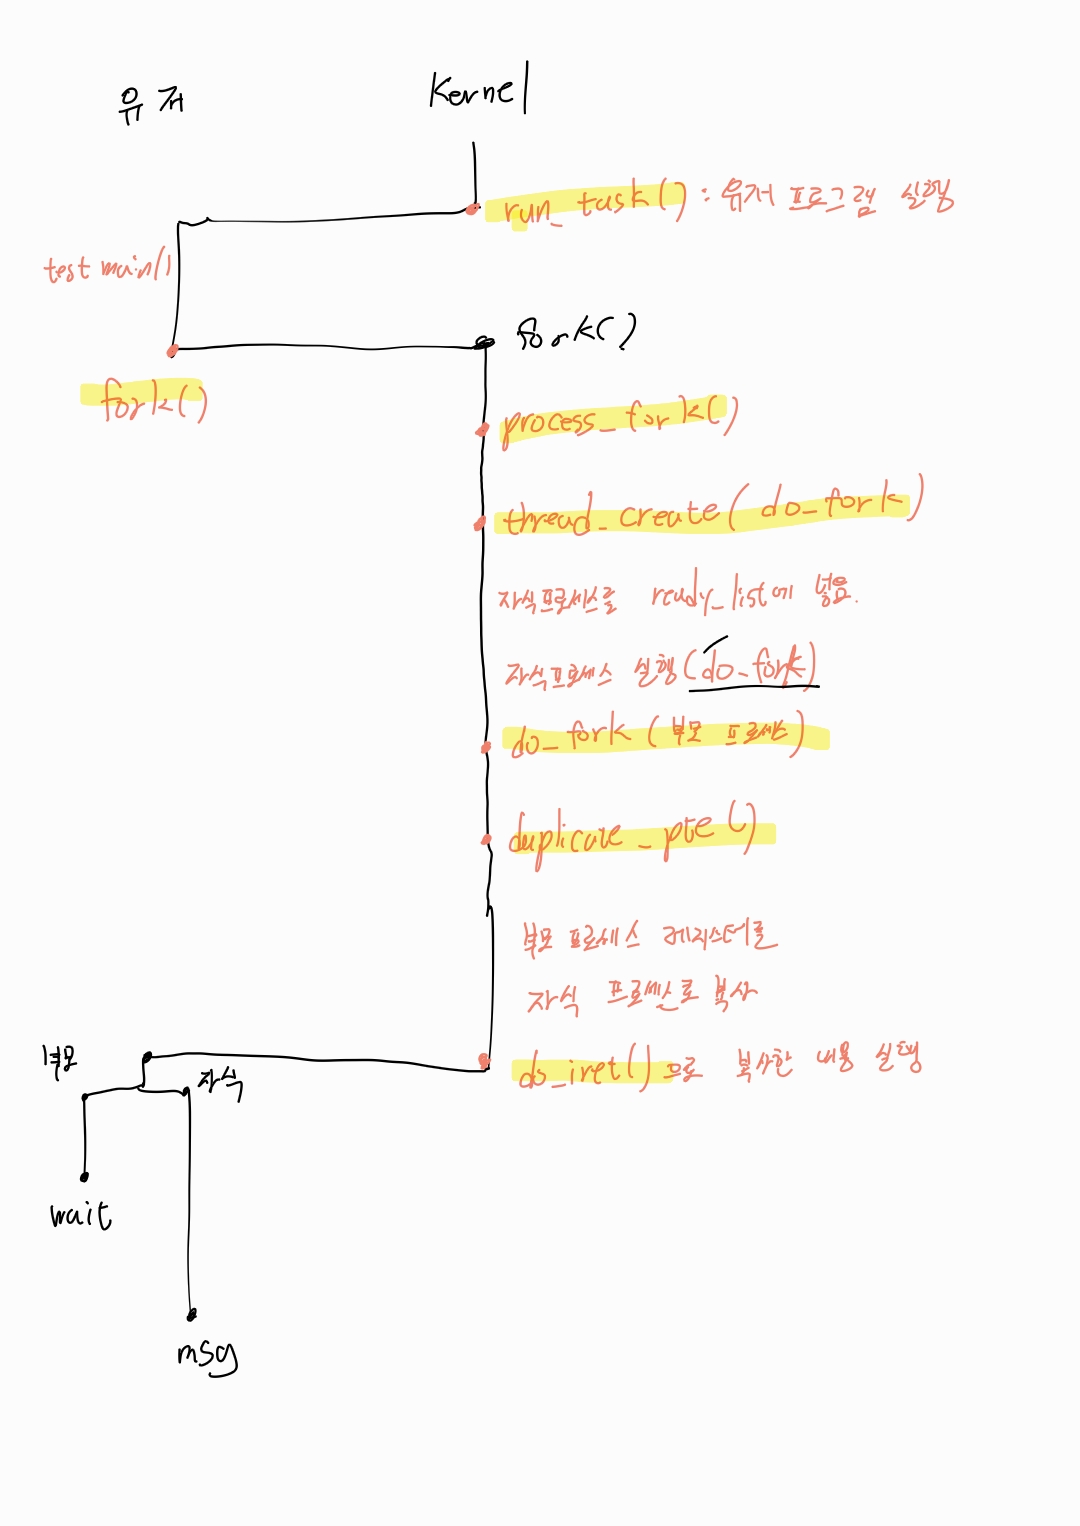 유저
Kernel
run_task() : 유저 프로그램 실행
test main()
fork()
fork()
process_fork()
thread_create( do_fork )
자식프로세스를 ready_list에 넣음.
자식프로세스 실행(do_fork)
do_fork ( 부모 프로세스 )
duplicate_pte()
부모 프로세스 레지스터를
자식 프로세스로 복사
do_iret()으로 복사한 내용 실행
부모
자식
wait
msg